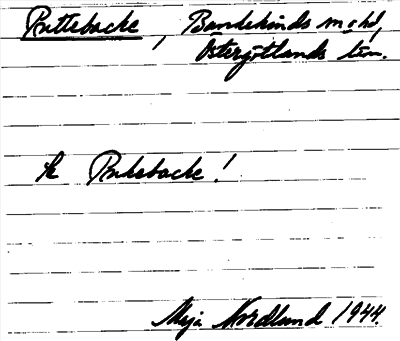 Ruttebacke, Bandekinds m o hd,
Östergötlands län.
Se Rukebacke!
Maja Nordlund 1944